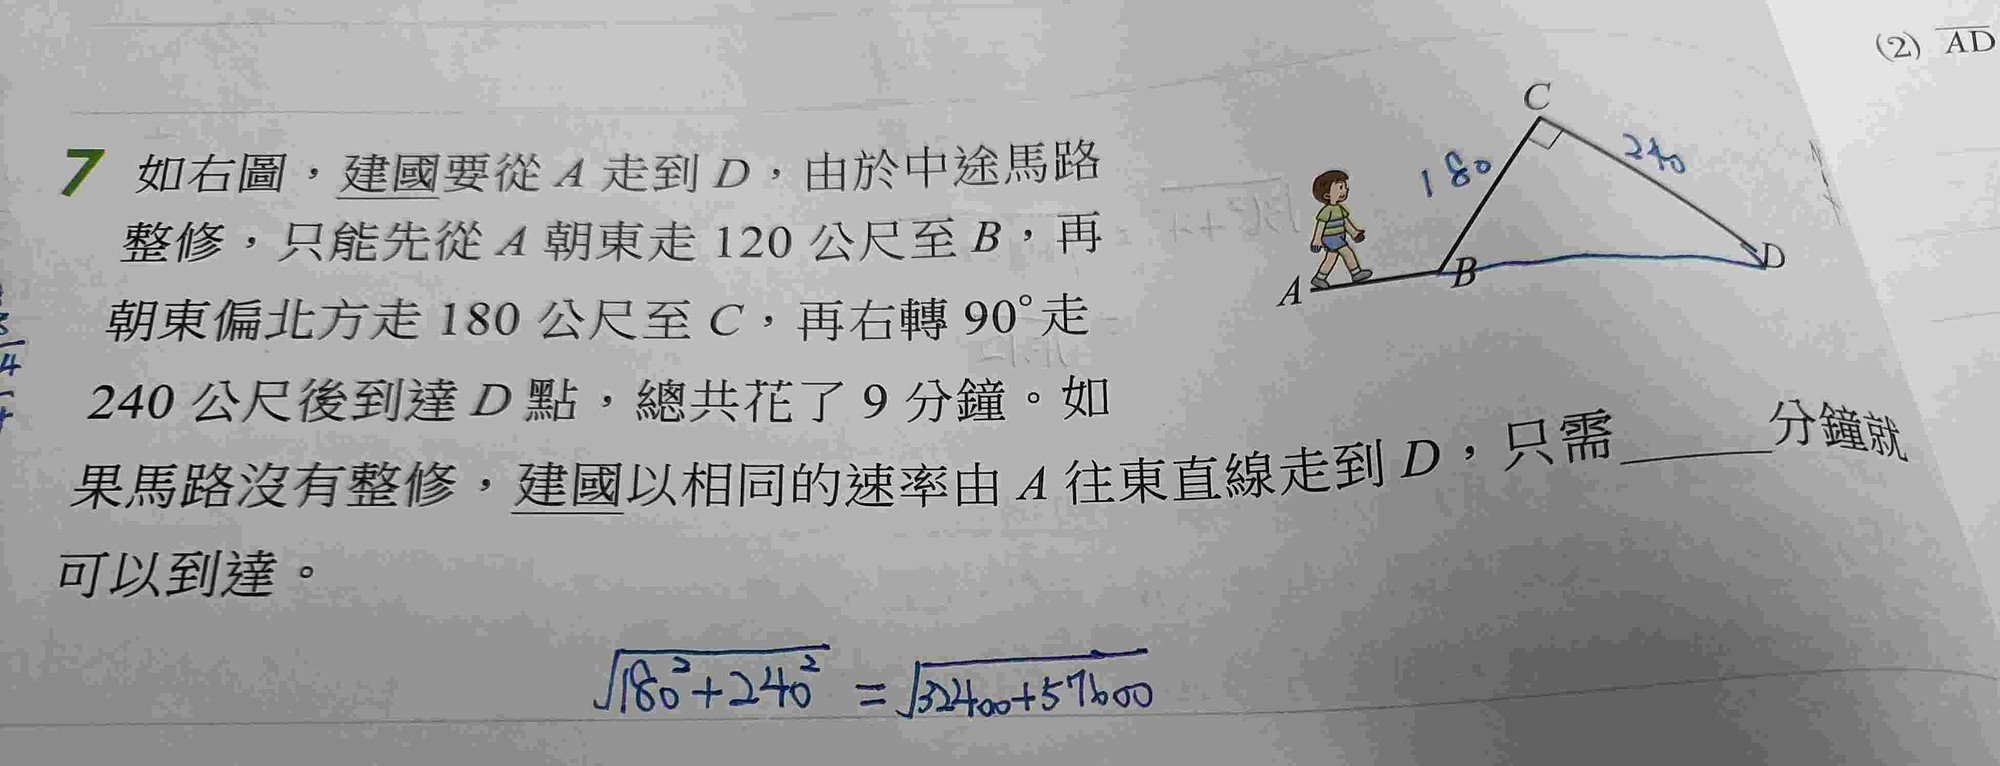 (2) AD
7 如右圖，建國要從 A 走到 D，由於中途馬路
整修，只能先從 A 朝東走 120 公尺至 B，再
朝東偏北方走 180 公尺至 C，再右轉 90° 走
240 公尺後到達 D 點，總共花了 9 分鐘。如
果馬路沒有整修，建國以相同的速率由 A 往東直線走到 D，只需_____分鐘就
可以到達。
C
180
240
A
B
D
√180²+240² = √32400+57600